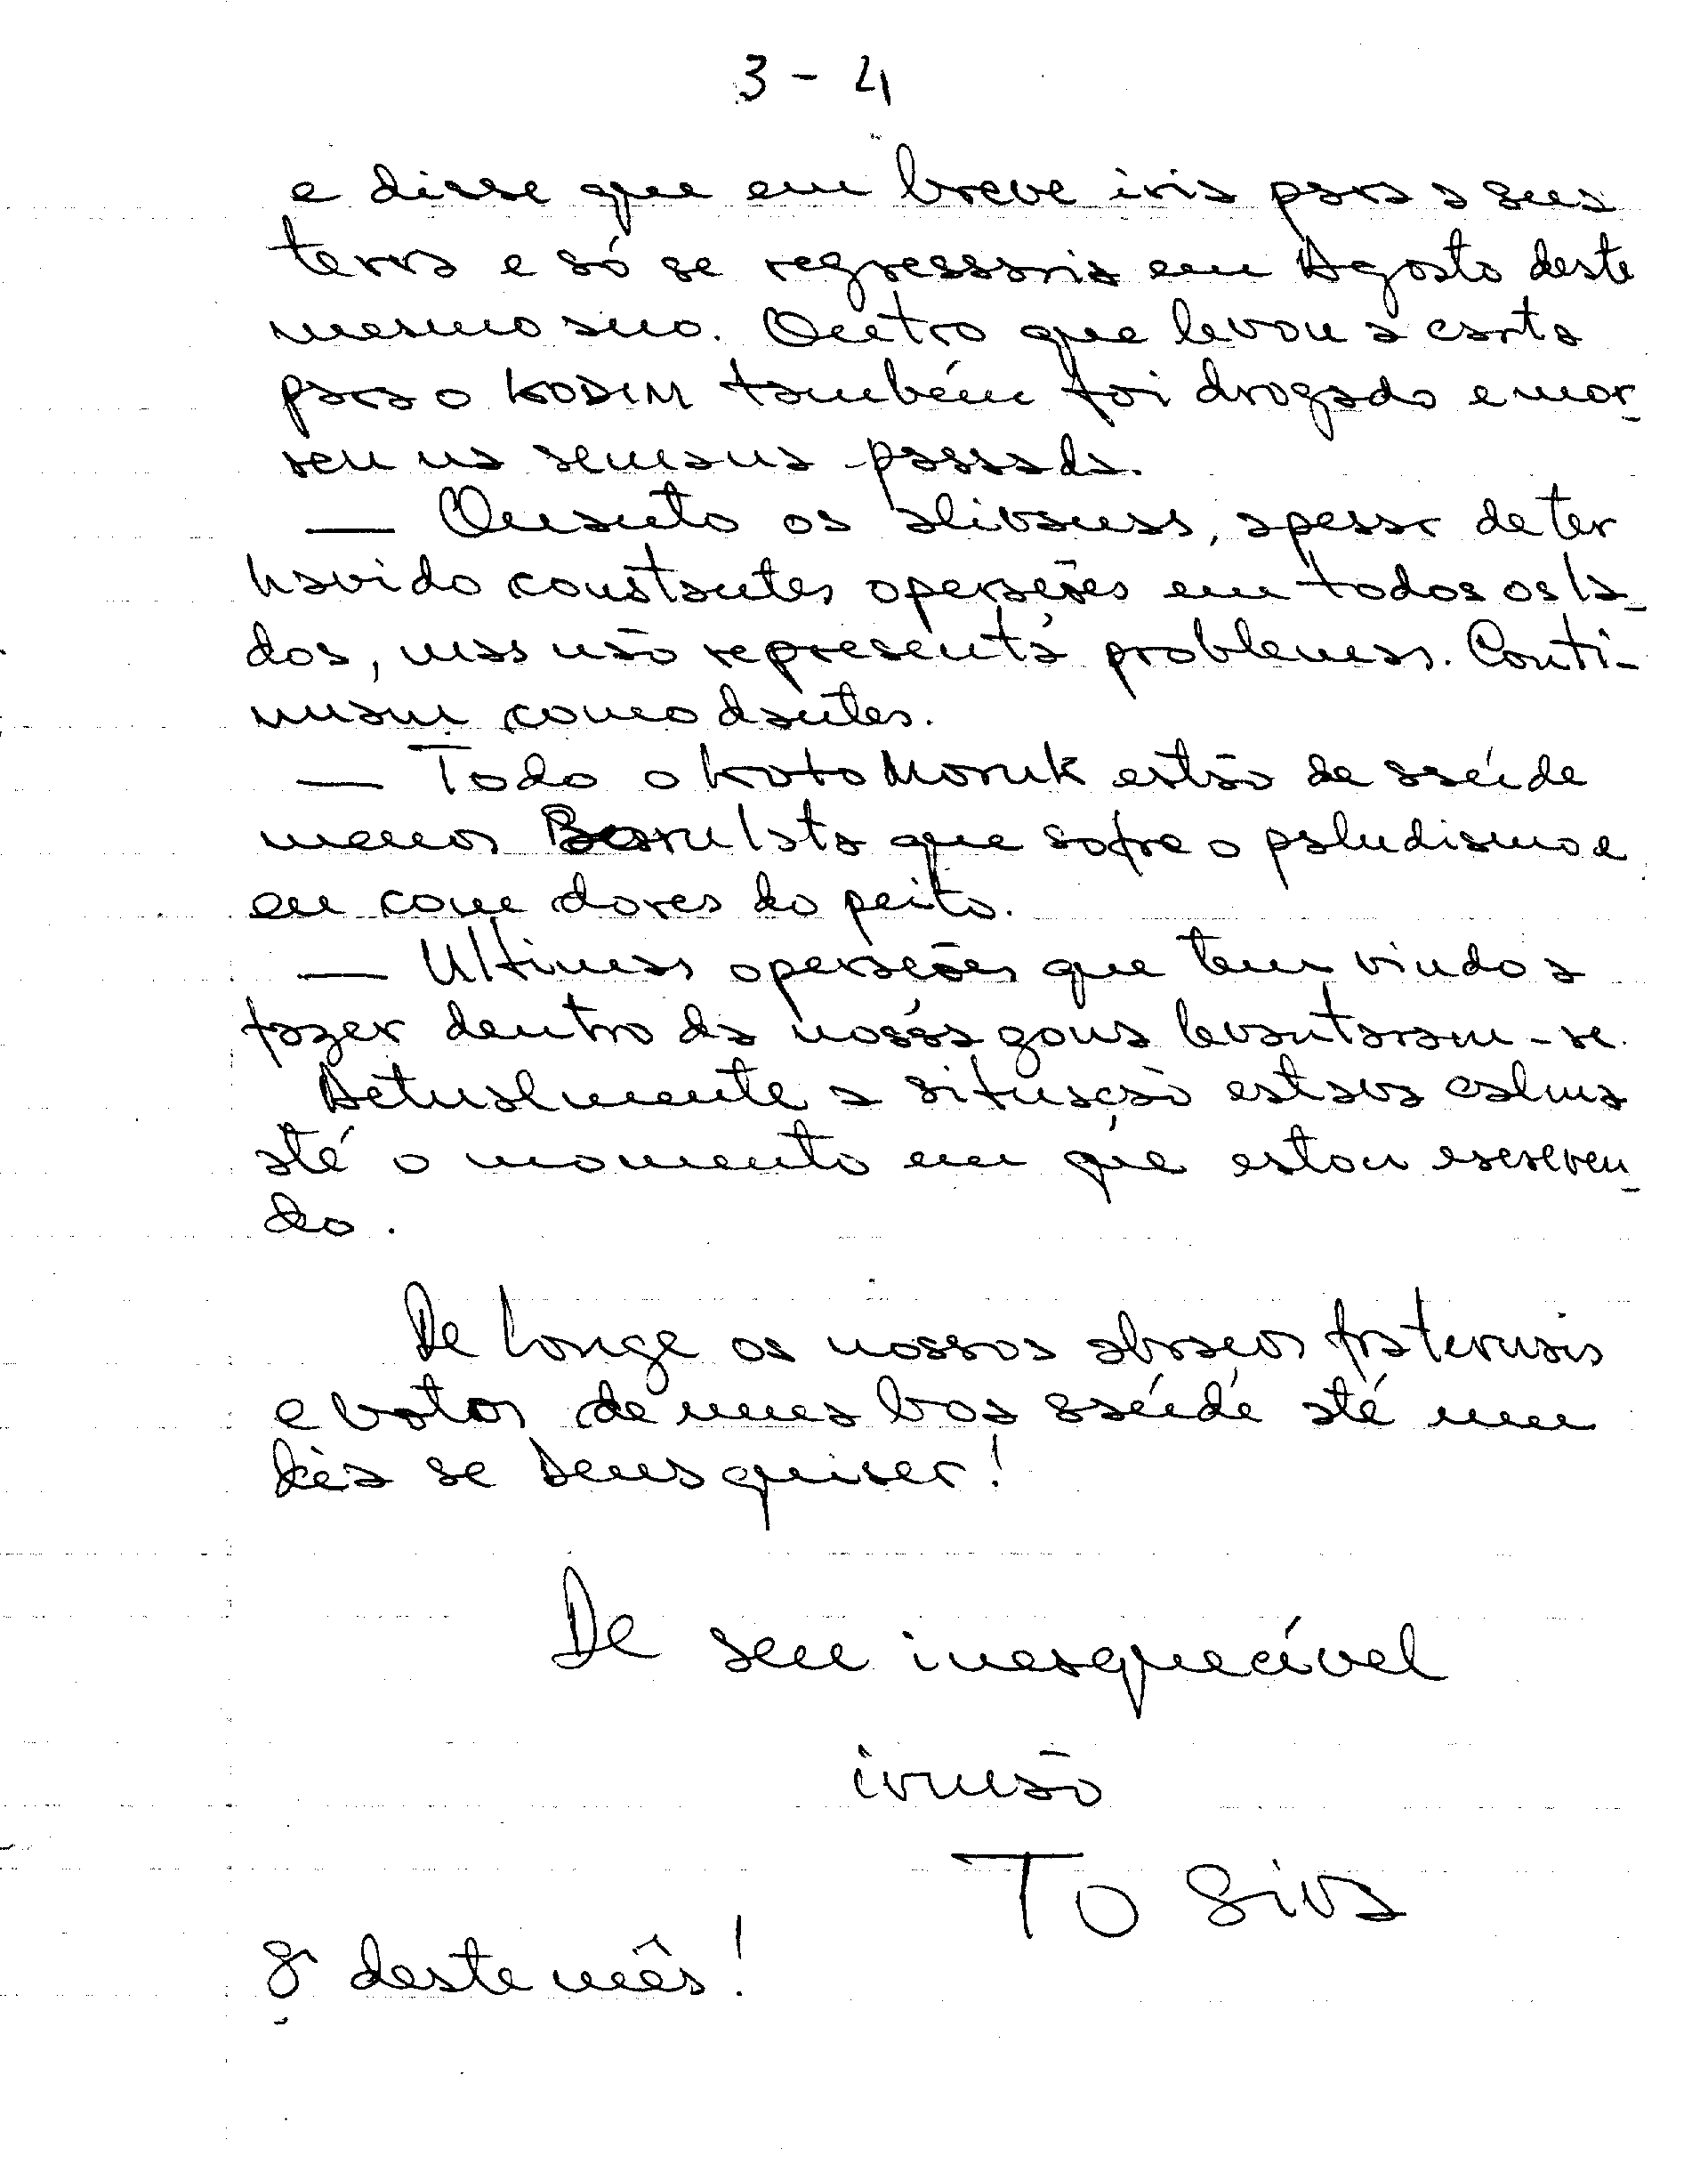 3 - 4
e disse que em breve iria para a sua
terra e só se regressaria em Agosto deste
mesmo ano. Outro que levou a carta
para o KODIM também foi drogado e mor-
reu na semana passada.
— Quanto os alivanas, apesar de ter
havido constantes operações em todos os la-
dos, mas não representa problemas. Conti-
nuam como dantes.
— Todo o koto Moruk estão de saúde
menos Baru Lata que sofre o paludismo e
eu com dores do peito.
— Ultimas operações que tem vindo a
fazer dentro da nossa zona levantaram-se.
Actualmente a situação estava calma
até o momento em que estou escreven-
do.
De Longe os nossos abraços fraternais
e votos de uma boa saúde até um
dia se Deus quiser!
De seu inesquecível
irmão
To Siva
8 deste mês!